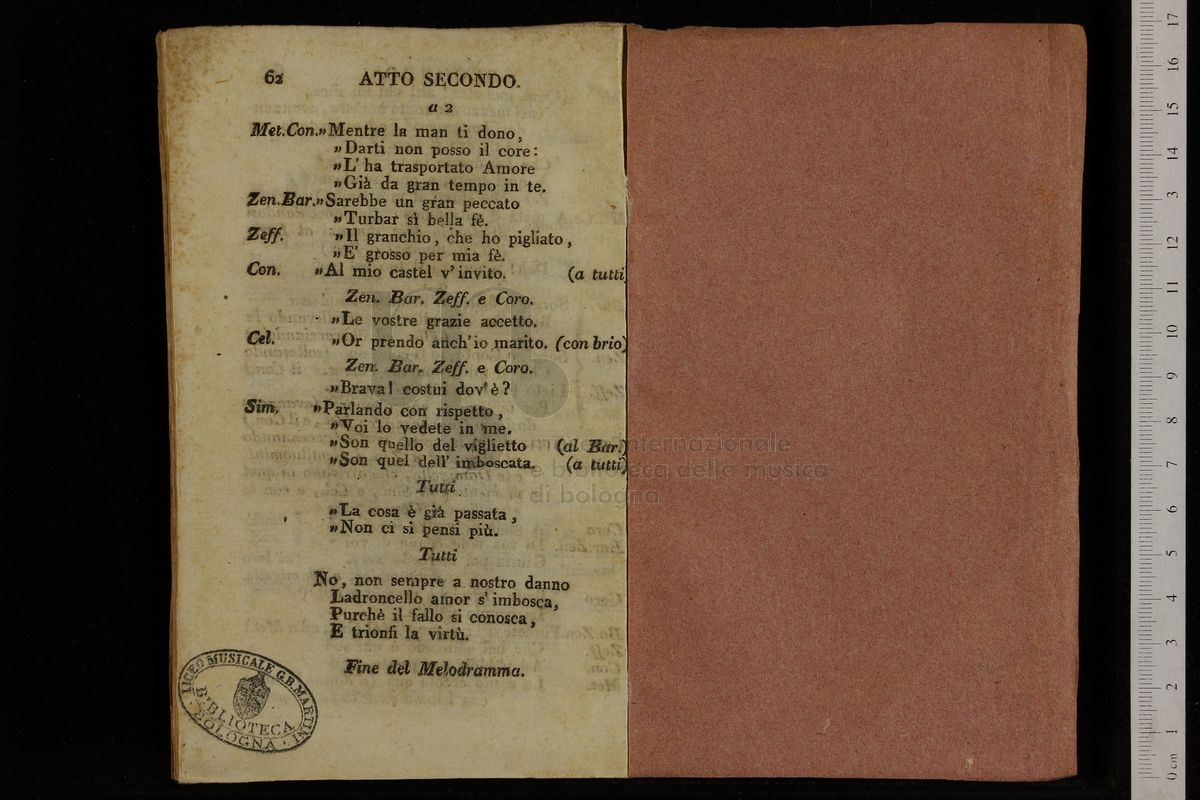 62 ATTO SECONDO.
a 2
Met. Con. »Mentre la man ti dono,
»Darti non posso il core:
»L' ha trasportato Amore
»Già da gran tempo in te.
Zen. Bar. »Sarebbe un gran peccato
»Turbar sì bella fè.
Zeff. »Il granchio, che ho pigliato,
»E' grosso per mia fè.
Con. »Al mio castel v' invito. (a tutti)
Zen. Bar. Zeff. e Coro.
»Le vostre grazie accetto.
Cel. »Or prendo anch' io marito. (con brio)
Zen. Bar. Zeff. e Coro.
»Brava! costui dov' è?
Sim. »Parlando con rispetto,
»Voi lo vedete in me.
»Son quello del viglietto (al Bar.)
»Son quel dell' imboscata. (a tutti)
Tutti
»La cosa è già passata,
»Non ci si pensi più.
Tutti
No, non sempre a nostro danno
Ladroncello amor s' imbosca,
Purchè il fallo si conosca,
E trionfi la virtù.
Fine del Melodramma.
LICEO MUSICALE G.B. MARTINI
BIBLIOTECA
BOLOGNA
museo internazionale
e biblioteca della musica
di bologna
0 cm 1 2 3 4 5 6 7 8 9 10 11 12 13 14 15 16 17